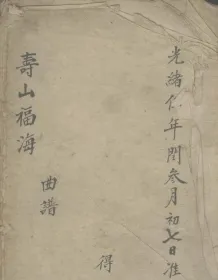 光緒年閏叁月初七日准
得
曲譜
壽山福海